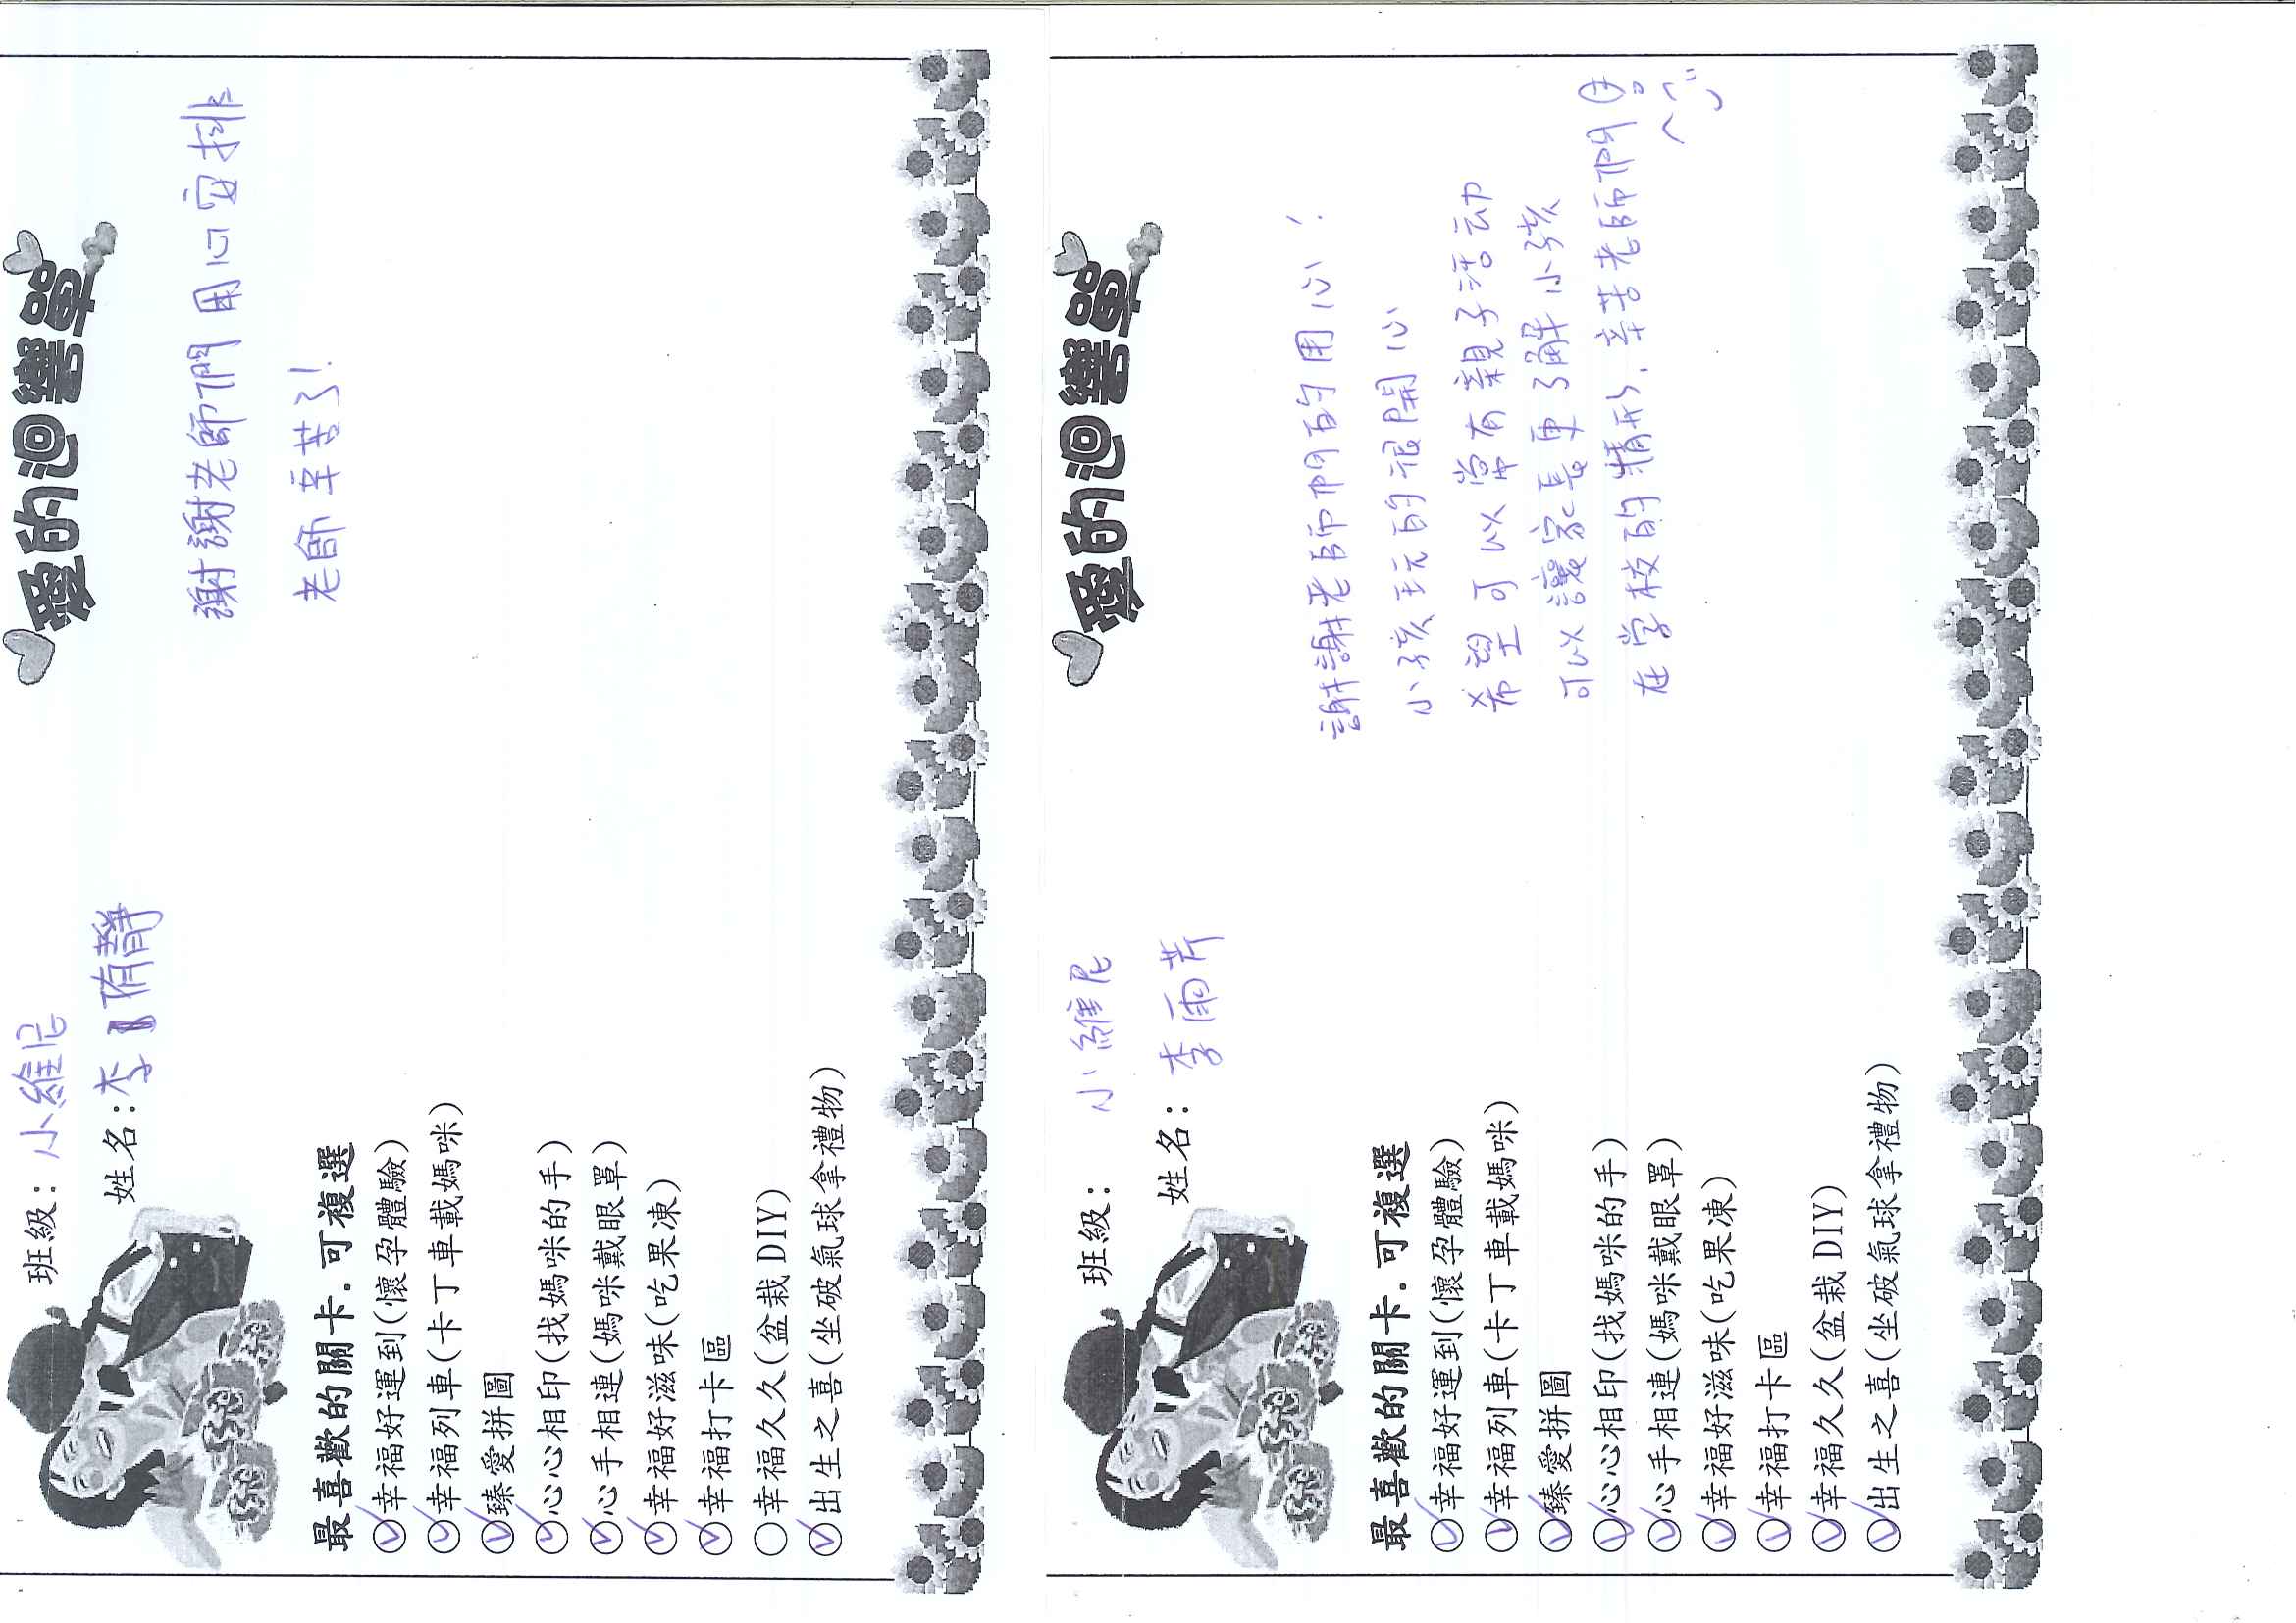 愛的迴響單
班級：小維尼
姓名：李侑靜
謝謝老師們用心安排
老師辛苦了！
最喜歡的關卡．可複選
幸福好運到(懷孕體驗)
幸福列車(卡丁車載媽咪)
臻愛拼圖
心心相印(找媽咪的手)
心手相連(媽咪戴眼罩)
幸福好滋味(吃果凍)
幸福打卡區
幸福久久(盆栽DIY)
出生之喜(坐破氣球拿禮物)
愛的迴響單
班級：小維尼
姓名：李雨芹
謝謝老師們的用心！
小孩玩的很開心
希望可以常有親子活动
可以讓家長更了解小孩
在学校的情形．辛苦老師們
最喜歡的關卡．可複選
幸福好運到(懷孕體驗)
幸福列車(卡丁車載媽咪)
臻愛拼圖
心心相印(找媽咪的手)
心手相連(媽咪戴眼罩)
幸福好滋味(吃果凍)
幸福打卡區
幸福久久(盆栽DIY)
出生之喜(坐破氣球拿禮物)